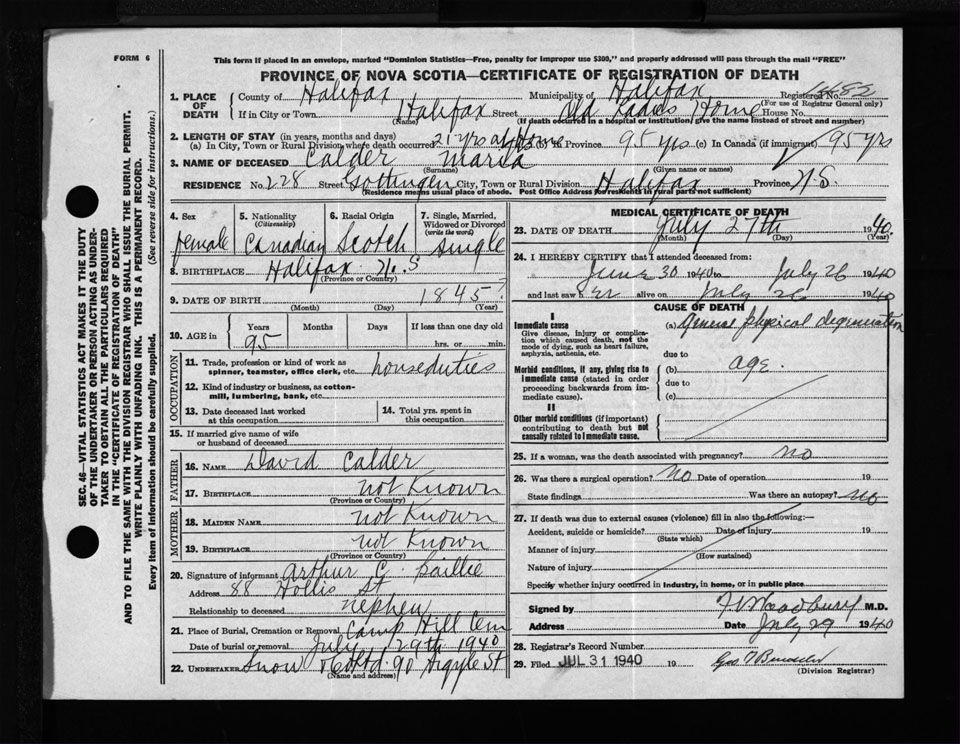 FORM 6
This form if placed in an envelope, marked "Dominion Statistics—Free, penalty for improper use $300," and properly addressed will pass through the mail "FREE"
PROVINCE OF NOVA SCOTIA—CERTIFICATE OF REGISTRATION OF DEATH
1. PLACE OF DEATH County of Halifax Municipality of Halifax Registered No. 4482
(For use of Registrar General only)
If in City or Town Halifax Street Old Ladies Home House No.
(Name) (If death occurred in a hospital or institution, give the name instead of street and number)
2. LENGTH OF STAY (in years, months and days)
(a) In City, Town or Rural Division where death occurred 21 yrs at Home (b) in Province 95 yrs (c) In Canada (if immigrant) 95 yrs
3. NAME OF DECEASED Calder Maria
(Surname) (Given name or names)
RESIDENCE No. 228 Street Gottingen City, Town or Rural Division Halifax Province N.S.
(Residence means usual place of abode. Post Office Address for residents in rural parts not sufficient)
4. Sex female
5. Nationality (Citizenship) Canadian
6. Racial Origin Scotch
7. Single, Married, Widowed or Divorced (write the word) single
8. BIRTHPLACE Halifax N.S
(Province or Country)
9. DATE OF BIRTH 1845
(Month) (Day) (Year)
10. AGE in Years Months Days If less than one day old
95 hrs. or min.
OCCUPATION
11. Trade, profession or kind of work as spinner, teamster, office clerk, etc. houseduties
12. Kind of industry or business, as cotton-mill, lumbering, bank, etc.
13. Date deceased last worked at this occupation
14. Total yrs. spent in this occupation
15. If married give name of wife or husband of deceased
FATHER
16. NAME David Calder
17. BIRTHPLACE not Known
(Province or Country)
MOTHER
18. MAIDEN NAME not Known
19. BIRTHPLACE not Known
(Province or Country)
20. Signature of informant Arthur C. Baillie
Address 88 Hollis St
Relationship to deceased nephew
21. Place of Burial, Cremation or Removal Camp Hill Cem
Date of burial or removal July 29th 1940
22. UNDERTAKER Snow & Co Ltd. 90 Argyle St
(Name and address)
MEDICAL CERTIFICATE OF DEATH
23. DATE OF DEATH July 27th 1940
(Month) (Day) (Year)
24. I HEREBY CERTIFY that I attended deceased from:
June 30 1940 to July 26 1940
and last saw her alive on July 26 1940
CAUSE OF DEATH
I
Immediate cause
Give disease, injury or complication which caused death, not the mode of dying, such as heart failure, asphyxia, asthenia, etc.
(a) General physical degeneration
due to
Morbid conditions, if any, giving rise to immediate cause (stated in order proceeding backwards from immediate cause).
(b) age.
due to
(c)
II
Other morbid conditions (if important) contributing to death but not causally related to immediate cause.
25. If a woman, was the death associated with pregnancy? no
26. Was there a surgical operation? no Date of operation 19
State findings Was there an autopsy? no
27. If death was due to external causes (violence) fill in also the following:—
Accident, suicide or homicide? Date of injury 19
(State which)
Manner of injury
(How sustained)
Nature of injury
Specify whether injury occurred in industry, in home, or in public place
Signed by F V Woodbury M.D.
Address Date July 29 1940
28. Registrar's Record Number
29. Filed JUL 31 1940 19
(Division Registrar)
SEC. 46—VITAL STATISTICS ACT MAKES IT THE DUTY
OF THE UNDERTAKER OR PERSON ACTING AS UNDER-
TAKER TO OBTAIN ALL THE PARTICULARS REQUIRED
IN THE "CERTIFICATE OF REGISTRATION OF DEATH"
AND TO FILE THE SAME WITH THE DIVISION REGISTRAR WHO SHALL ISSUE THE BURIAL PERMIT.
WRITE PLAINLY WITH UNFADING INK. THIS IS A PERMANENT RECORD.
Every item of information should be carefully supplied. (See reverse side for instructions.)